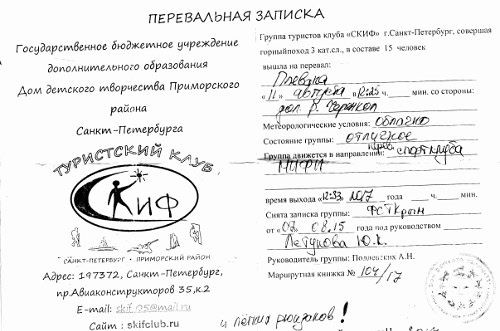 ПЕРЕВАЛЬНАЯ ЗАПИСКА
Государственное бюджетное учреждение
дополнительного образования
Дом детского творчества Приморского
района
Санкт-Петербурга
ТУРИСТСКИЙ КЛУБ
СКИФ
САНКТ-ПЕТЕРБУРГ - ПРИМОРСКИЙ РАЙОН
Адрес: 197372, Санкт-Петербург,
пр.Авиаконструкторов 35,к.2
E-mail: skif_35@mail.ru
Сайт : skifclub.ru
Группа туристов клуба «СКИФ» г.Санкт-Петербург, совершая
горныйпоход 3 кат.сл., в составе 15 человек
вышла на перевал:
Плевака
«11» августа в 12:25 мин. со стороны:
дол. р.
Метеорологические условия: облачно
Состояние группы: отличное
Группа движется в направлении: спортклуба
МИФИ
время выхода «12:33 2017 года ч. мин.
Снята записка группы: ФСТ Крым
от «02 08.15 года под руководством
Летунова Ю.К.
Руководитель группы: Поллевских А.Н.
Маршрутная книжка № 104/17
и лёгких рюкзаков!